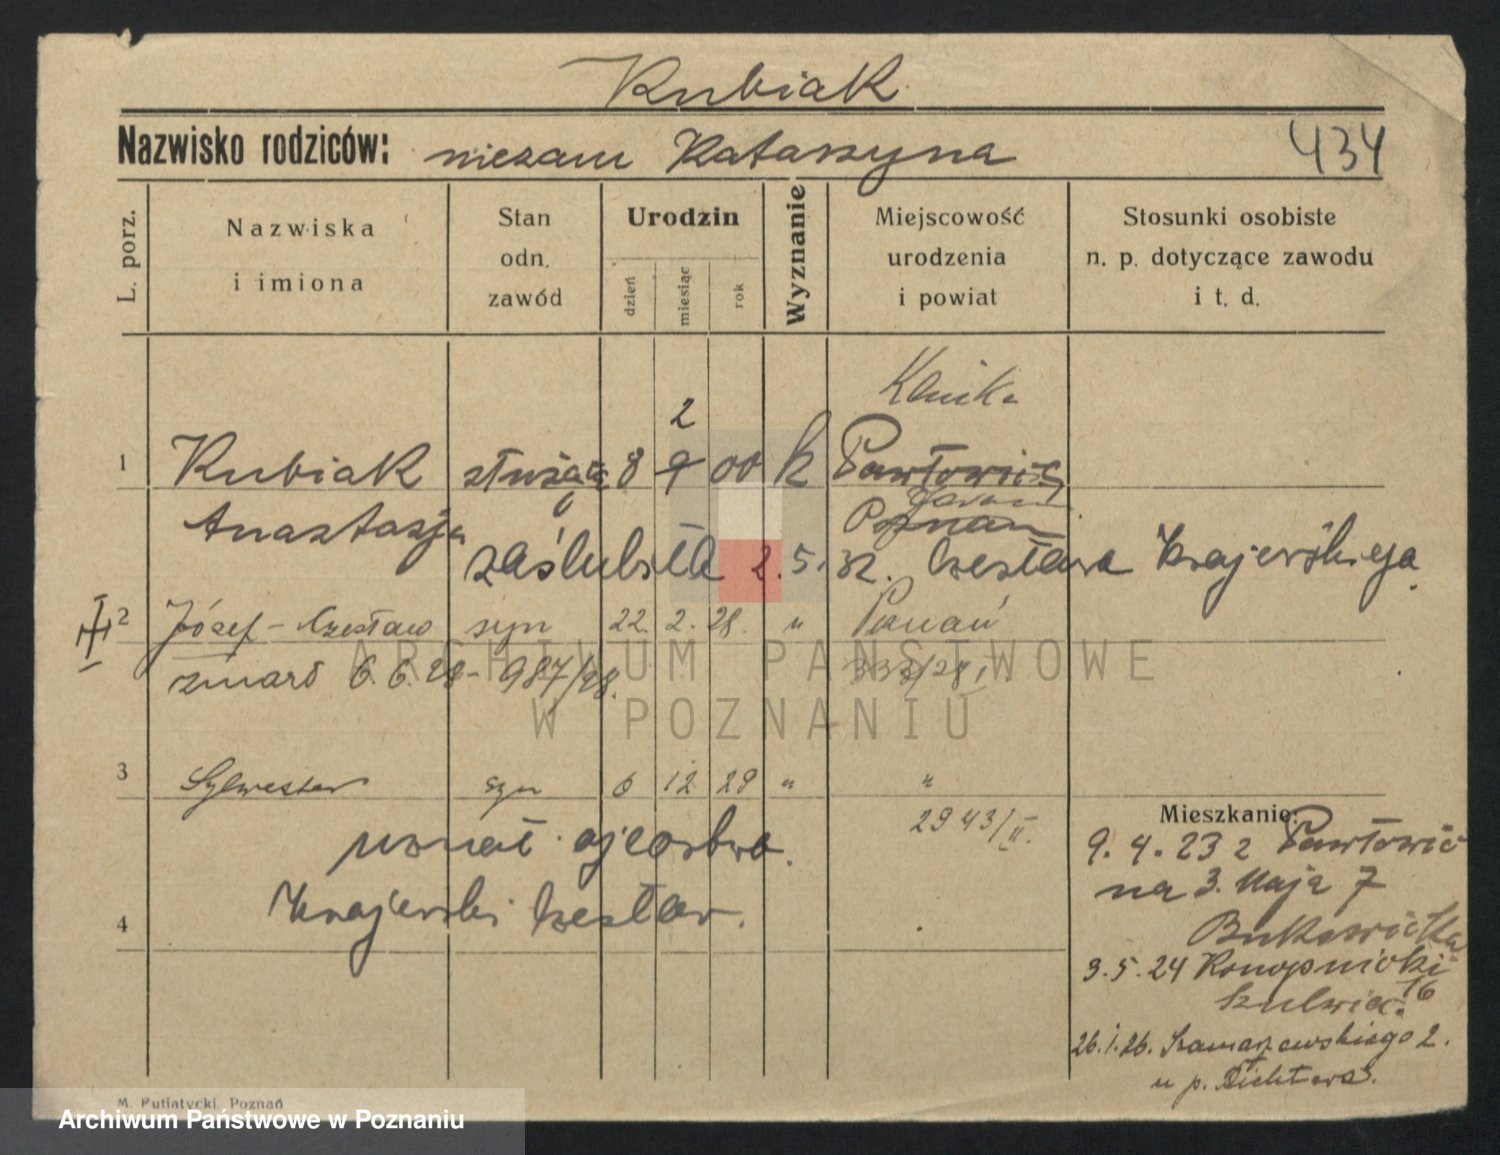 Kubiak
Nazwisko rodziców: niezam Katarzyna 434
L. porz.
Nazwiska i imiona
Stan odn. zawód
Urodzin
dzień
miesiąc
rok
Wyznanie
Miejscowość urodzenia i powiat
Stosunki osobiste n. p. dotyczące zawodu i t. d.
2
1 Kubiak służąca 8 9 00 k Pawłowice
Anastazja Poznań
zaślubiła 2.5.32. Czesława Krajewskiego.
2 Józef - Czesław syn 22. 2. 28. " Poznań
zmarł 6.6.28 - 987/28.
3 Sylwester syn 6 12 28 " "
2943/II.
uznał ojcostwo.
Krajewski Czesław.
4
Mieszkanie:
9.4.23 z Pawłowic
na 3. Maja 7
Bukowiecka
3.5.24 Konopnicki
16
26.1.26. Szamarzewskiego 2.
u p. Richtera.
M. Putiatycki, Poznań
ARCHIWUM PAŃSTWOWE
W POZNANIU
Archiwum Państwowe w Poznaniu